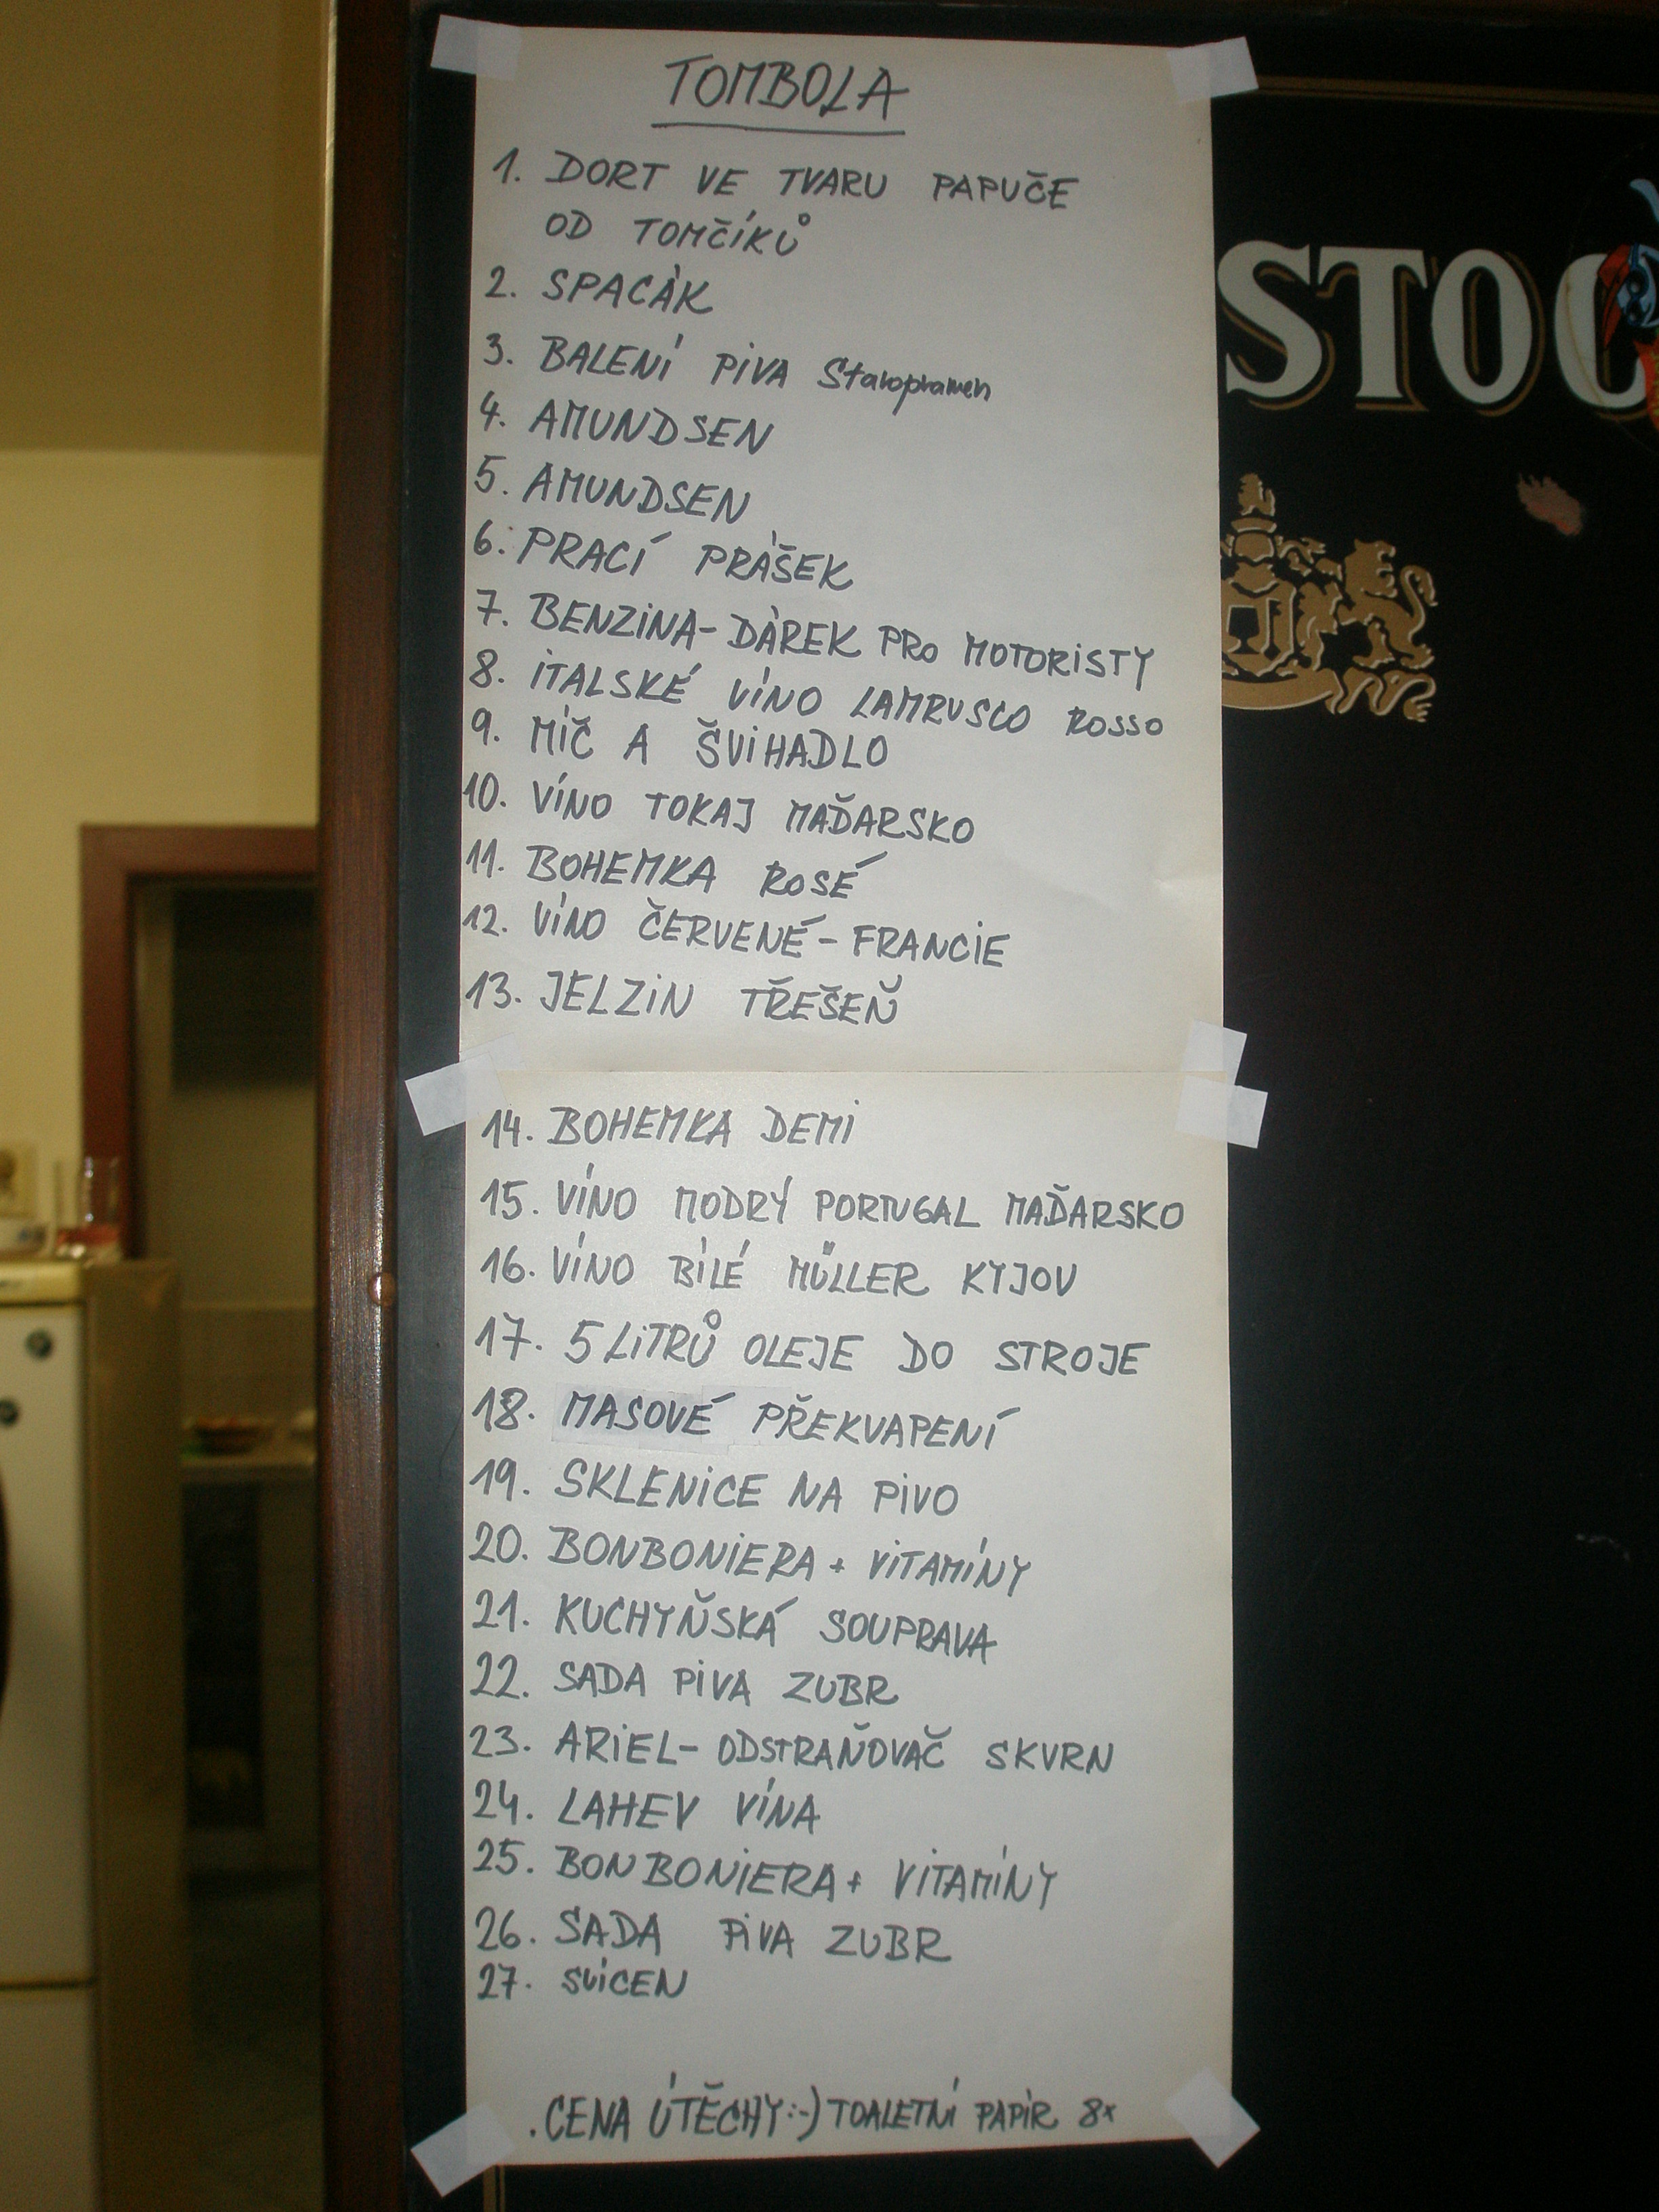 TOMBOLA
1. DORT VE TVARU PAPUČE
OD TOMČÍKŮ
2. SPACÁK
3. BALENÍ PIVA Staropramen
4. AMUNDSEN
5. AMUNDSEN
6. PRACÍ PRÁŠEK
7. BENZINA- DÁREK PRO MOTORISTY
8. ITALSKÉ VÍNO LAMRUSCO ROSSO
9. MÍČ A ŠVIHADLO
10. VÍNO TOKAJ MAĎARSKO
11. BOHEMKA ROSÉ
12. VÍNO ČERVENÉ - FRANCIE
13. JELZIN TŘEŠEŇ
14. BOHEMKA DEMI
15. VÍNO MODRÝ PORTUGAL MAĎARSKO
16. VÍNO BÍLÉ MÜLLER KYJOV
17. 5 LITRŮ OLEJE DO STROJE
18. MASOVÉ PŘEKVAPENÍ
19. SKLENICE NA PIVO
20. BONBONIERA + VITAMÍNY
21. KUCHYŇSKÁ SOUPRAVA
22. SADA PIVA ZUBR
23. ARIEL- ODSTRAŇOVAČ SKVRN
24. LAHEV VÍNA
25. BONBONIERA + VITAMÍNY
26. SADA PIVA ZUBR
27. SVÍCEN
. CENA ÚTĚCHY :-) TOALETNÍ PAPÍR 8x
STOC